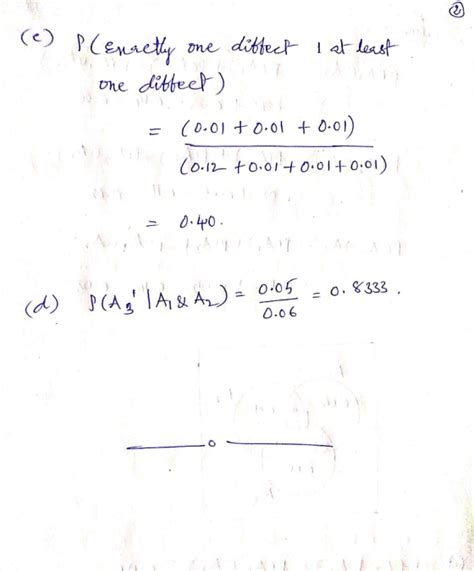 2
(c) P(Exactly one diffect | at least
one diffect)
= (0.01 + 0.01 + 0.01)
(0.12 + 0.01 + 0.01 + 0.01)
= 0.40.
(d) P(A3' | A1 & A2) = 0.05 / 0.06 = 0.8333.